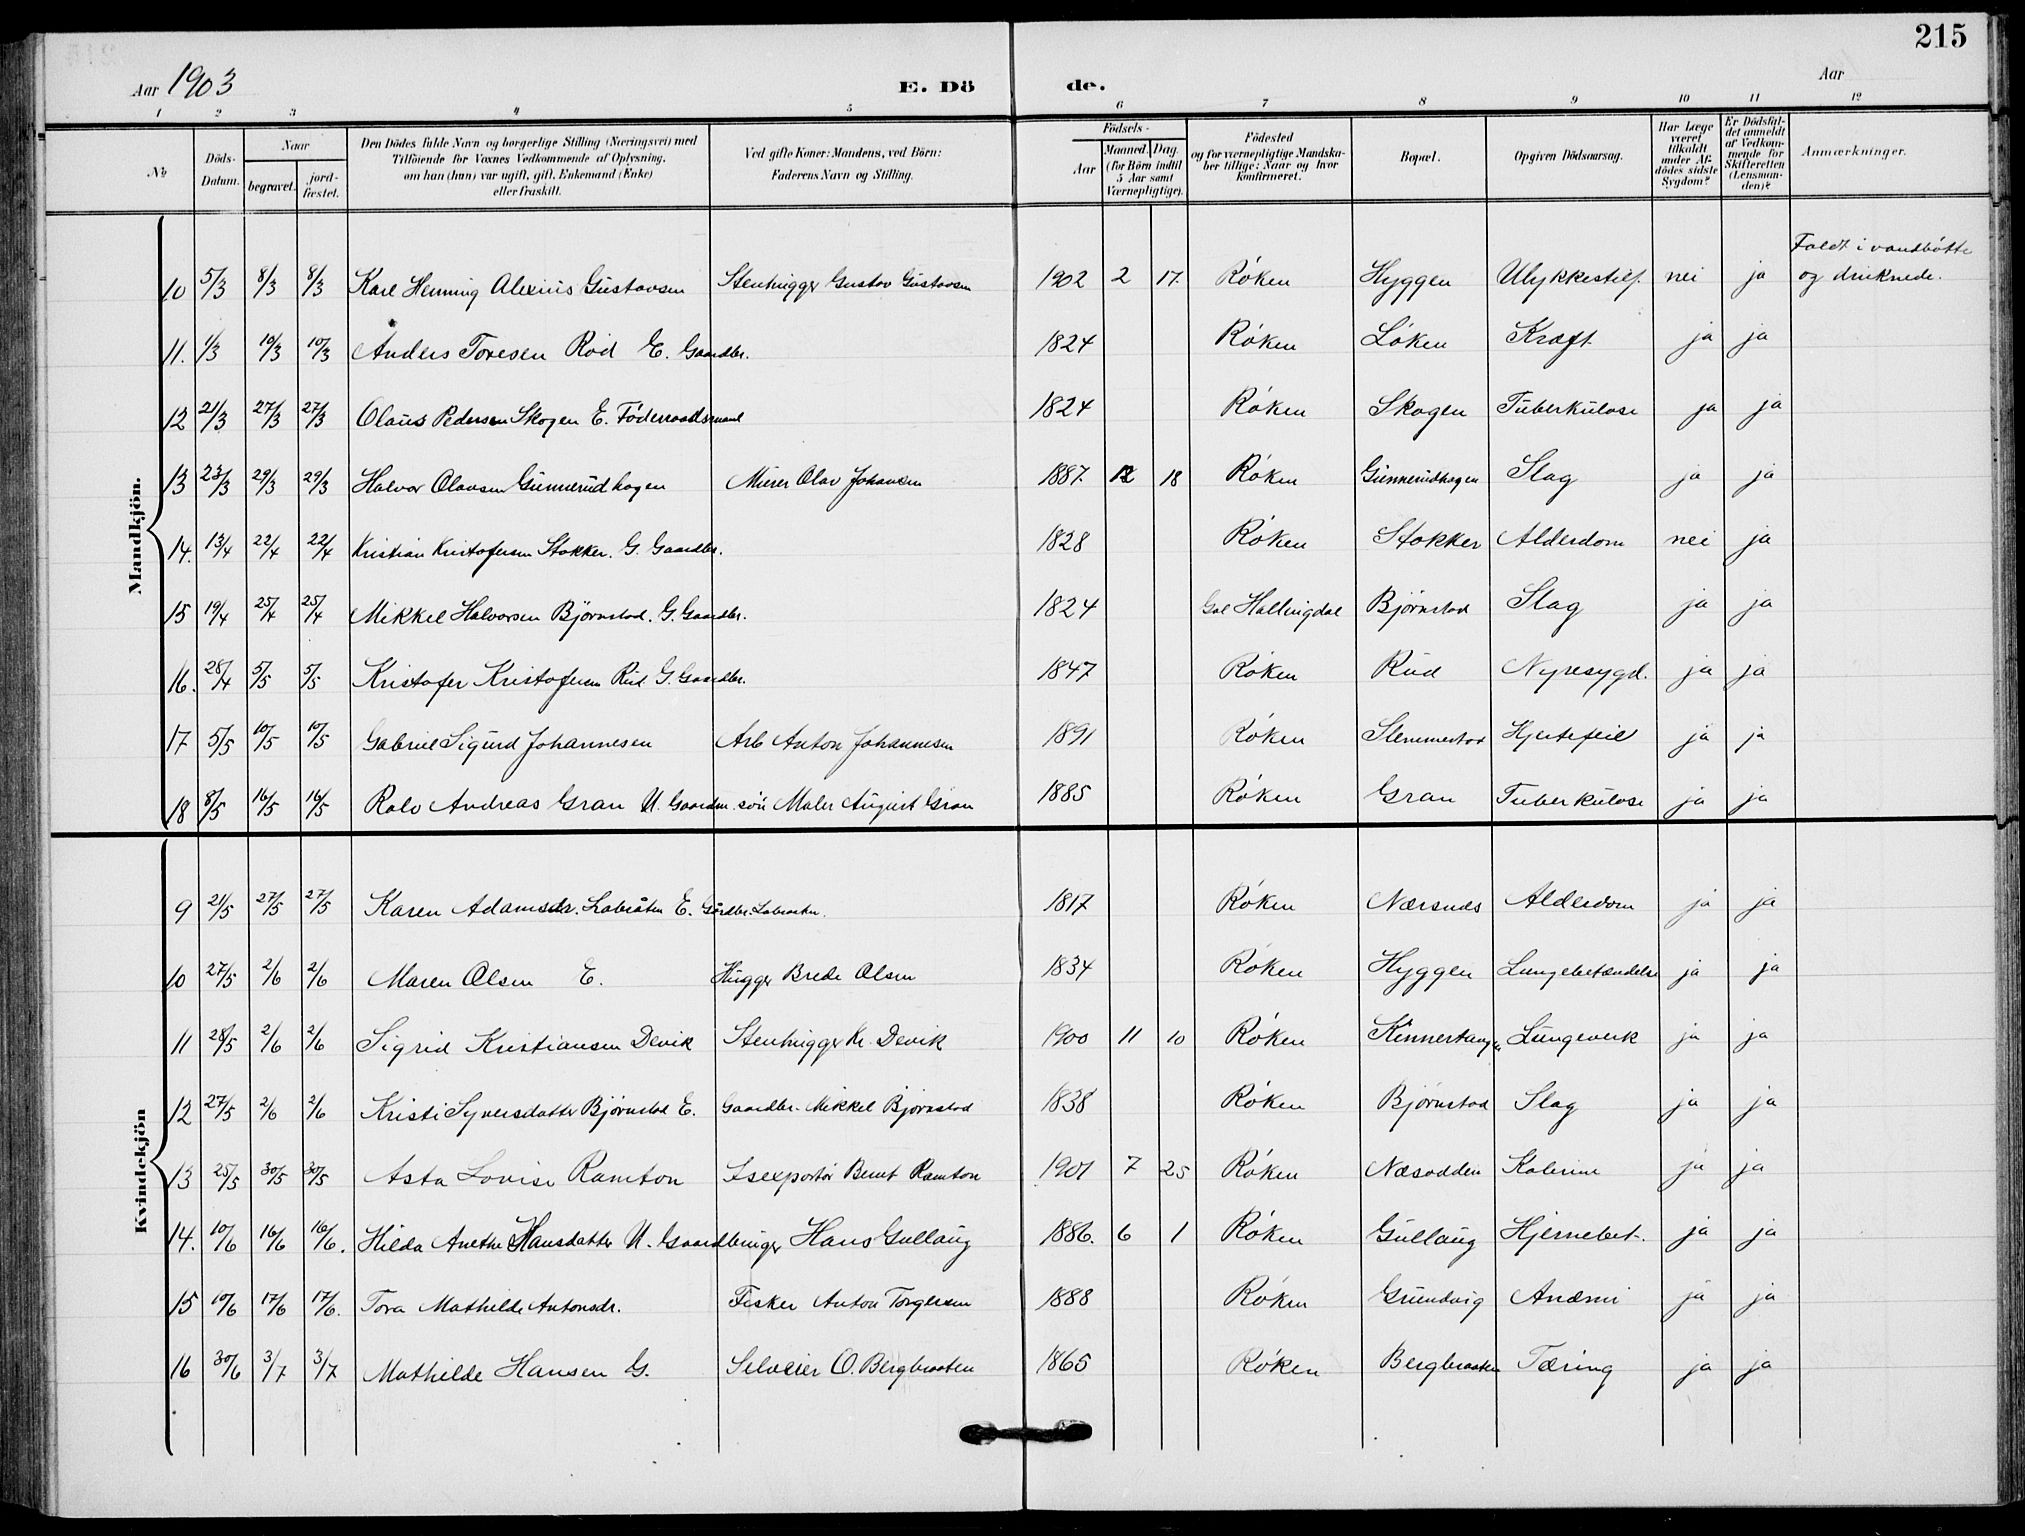 215
Aar 1903 E. Dö de. Aar
1 2 3 4 5 6 7 8 9 10 11 12
№ Döds-Datum. Naar begravet. jord-fæstet. Den Dödes fulde Navn og borgerlige Stilling (Næringsvei) med Tilföiende for Voxnes Vedkommende af Oplysning, om han (hun) var ugift, gift, Enkemand (Enke) eller fraskilt. Ved gifte Koner: Mandens, ved Börn: Faderens Navn og Stilling. Födsels- Aar Maaned. Dag. (for Börn indtil 5 Aar samt Værnepligtige). Födested og for værnepligtige Mandskaber tillige: Naar og hvor konfirmeret. Bopæl. Opgiven Dödsaarsag. Har Læge været tilkaldt under Afdödes sidste Sygdom? Er Dödsfaldet anmeldt af Vedkommende for Skifteretten (Lensmanden)? Anmærkninger.
Mandkjön.
Faldt i vandbøtte
10 5/3 8/3 8/3 Karl Henning Alexius Gustavsen Stenhugger Gustav Gustavsen 1902 2 17. Røken Hyggen Ulykkestilf. nei ja og druknede.
11. 1/3 10/3 10/3 Anders Toresen Rød E. Gaardbr. 1824 Røken Løken Kræft ja ja
12 21/3 27/3 27/3 Olaus Pedersen Skogen E. Föderaadsmand 1824 Røken Skogen Tuberkulose ja ja
13 23/3 29/3 29/3 Halvor Olavsen Gunnerudhagen Murer Olav Johansen 1887. 12 18 Røken Gunnerudhagen Slag ja ja
14. 13/4 22/4 22/4 Kristian Kristofersen Stokker. G. Gaardbr. 1828 Røken Stokker Alderdom nei ja
15 19/4 25/4 25/4 Mikkel Halvorsen Bjørnstad. G. Gaardbr. 1824 Gol Hallingdal Bjørnstad Slag ja ja
16. 28/4 5/5 5/5 Kristofer Kristofersen Rud G. Gaardbr. 1847 Røken Rud Nyresygd. ja ja
17 5/5 10/5 10/5 Gabriel Sigurd Johannesen Arb Anton Johannesen 1891 Røken Slemmestad Hjertefeil ja ja
18 8/5 16/5 16/5 Rolv Andreas Gran U. Gaardm. søn Maler August Gran 1885 Røken Gran Tuberkulose ja ja
Kvindekjön
9 21/5 27/5 27/5 Karen Adamsdr. Labråten E. Gårdbr. Labraaten. 1817 Røken Nærsnes Alderdom ja ja
10 27/5 2/6 2/6 Maren Olsen E. Hugger Brede Olsen 1834 Røken Hyggen Lungebetændelse ja ja
11 28/5 2/6 2/6 Sigrid Kristiansen Devik Stenhugger Kr. Devik 1900 11 10 Røken Kinnertangen Lungeverk ja ja
12 27/5 2/6 2/6 Kristi Syversdatter Bjørnstad E. Gaardbr. Mikkel Bjørnstad 1838 Røken Bjørnstad Slag ja ja
13 25/5 30/5 30/5 Asta Lovise Ramton Isexportør Bernt Ramton 1901 7 25 Røken Næsodden Kolerine ja ja
14. 10/6 16/6 16/6. Hilda Anethe Hansdatter U. Gaardbruger Hans Gullaug 1886. 6 1 Røken Gullaug Hjernebet. ja ja
15 10/6 17/6 17/6. Tora Mathilde Antonsdr. Fisker Anton Torgersen 1888 Røken Grundvig Anæmi ja ja
16 30/6 3/7 3/7 Mathilde Hansen G. Selveier O. Bergbraaten 1865 Røken Bergbraaten Tæring ja ja